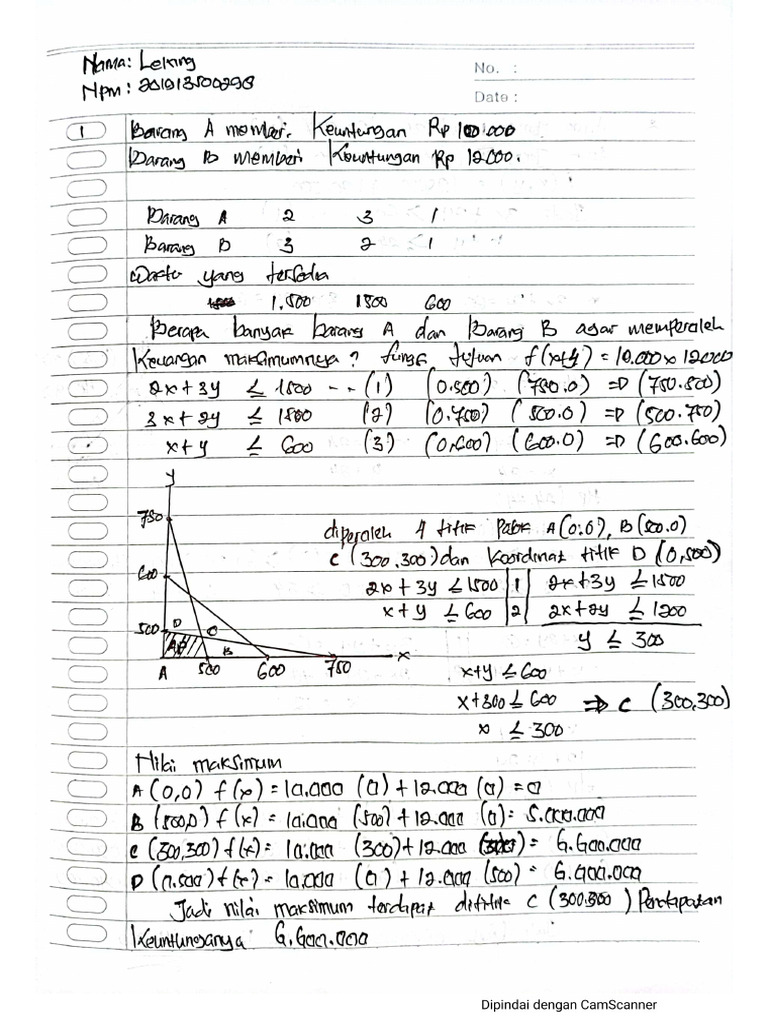 Nama: Leking
No. :
Npm: 201913500298
Date :
1 Barang A memberi. Keuntungan Rp 100.000
Barang B memberi Keuntungan Rp 12000.
Barang A 2 3 1
Barang B 3 2 1
Waktu yang tersedia
1.500 1500 600
Berapa banyak barang A dan Barang B agar memperoleh
Keuangan maksimumnya? fungsi tujuan f(x+y) = 10.000 x 12000
2x + 3y ≤ 1500 -- (1) (0.500) (750.0) => (750.500)
3x + 2y ≤ 1500 (2) (0.750) (500.0) => (500.750)
x + y ≤ 600 (3) (0,600) (600.0) => (600.600)
y
750
diperoleh 4 titik Pabk A(0.0), B(500.0)
C (300,300) dan Koordinat titik D (0,500)
600
2x + 3y ≤ 1500 | 1 | 2x + 3y ≤ 1500
x + y ≤ 600 | 2 | 2x + 2y ≤ 1200
500 D C
y ≤ 300
B x
A 500 600 750
x+y ≤ 600
x+300 ≤ 600 => C (300,300)
x ≤ 300
Nilai maksimum
A (0,0) f(x) = 10.000 (0) + 12.000 (0) = 0
B (500,0) f(x) = 10.000 (500) + 12.000 (0) = 5.000.000
C (300,300) f(x) = 10.000 (300) + 12.000 (300) = 6.600.000
D (0.500) f(x) = 10.000 (0) + 12.000 (500) = 6.000.000
Jadi nilai maksimum terdapat dititik C (300.300) Pendapatan
Keuntunganya 6.600.000
Dipindai dengan CamScanner